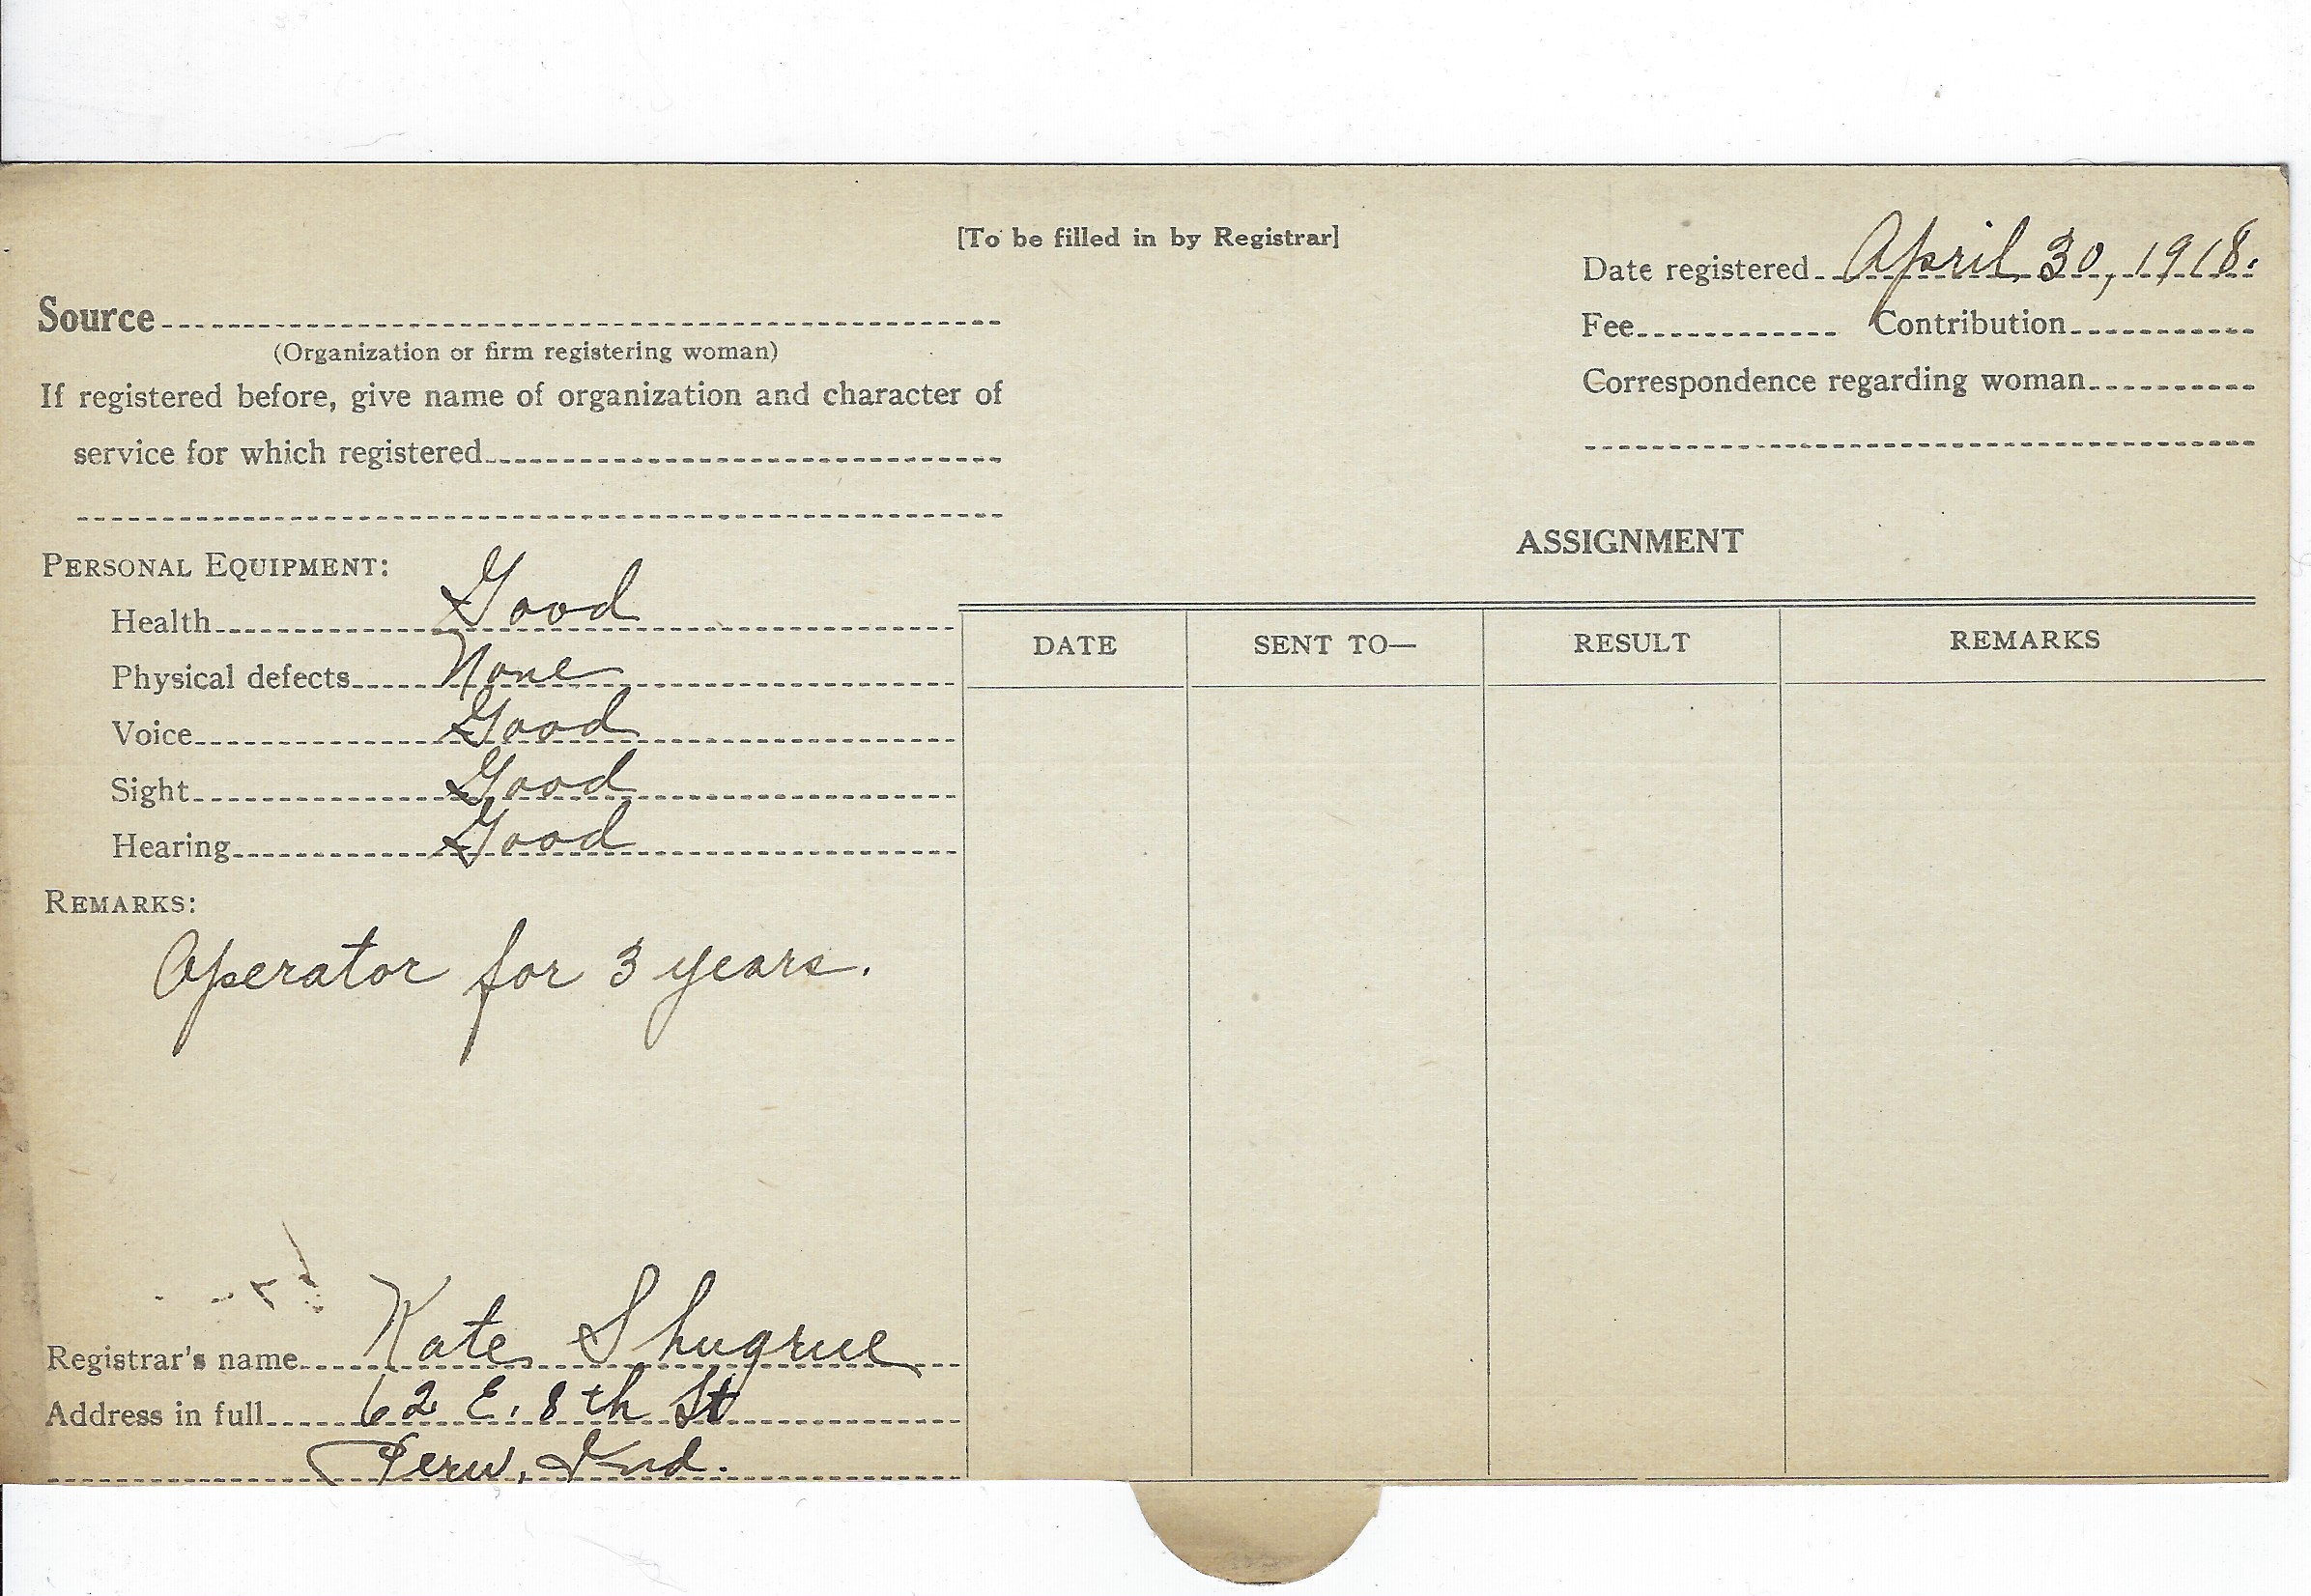 [To be filled in by Registrar]
Date registered April 30, 1918.
Source
Fee Contribution
(Organization or firm registering woman)
Correspondence regarding woman
If registered before, give name of organization and character of
service for which registered
ASSIGNMENT
PERSONAL EQUIPMENT:
Health Good
Physical defects None
Voice Good
Sight Good
Hearing Good
DATE SENT TO— RESULT REMARKS
REMARKS:
Operator for 3 years.
Registrar's name Kate Shugrue
Address in full 62 E. 8th St
Peru, Ind.